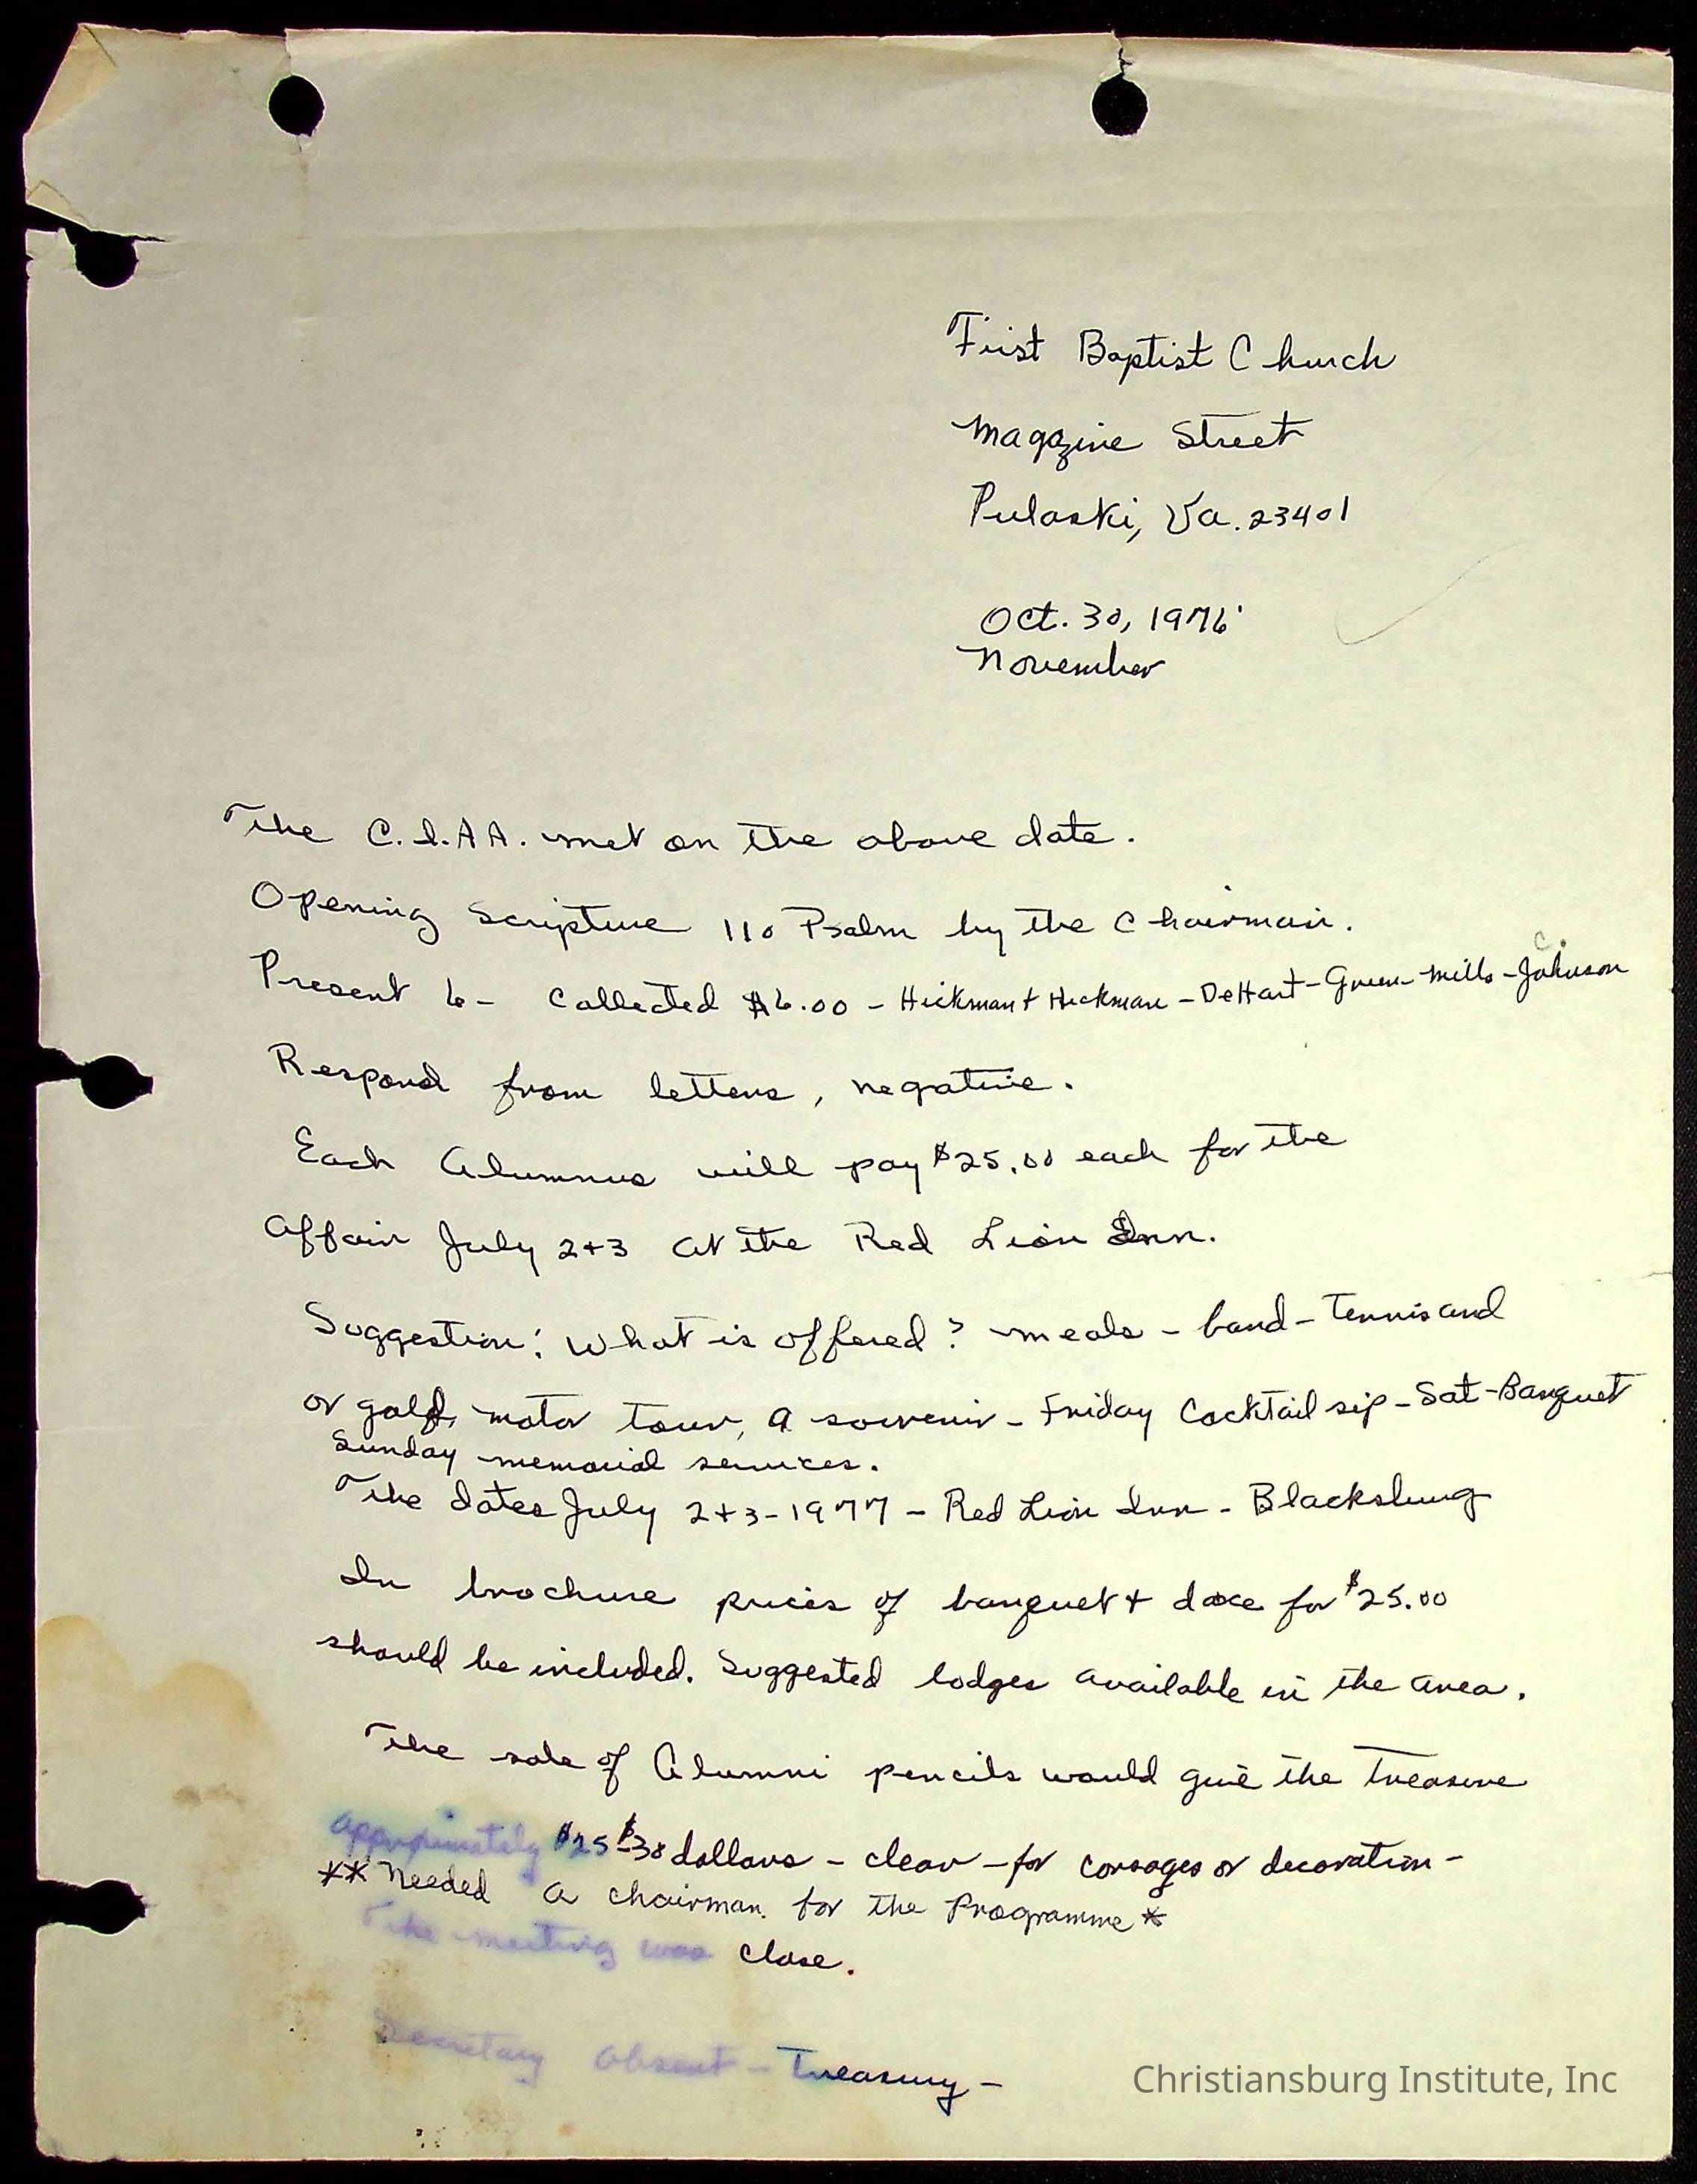 First Baptist Church
Magazine Street
Pulaski, Va. 23401
Oct. 30, 1976
November
The C.I.A.A. met on the above date.
Opening Scripture 110 Psalm by the Chairman.
Present 6 - Collected $6.00 - Hickman + Hickman - DeHart - Green - Mills - Johnson
C.
Respond from letters, negative.
Each Alumnus will pay $25.00 each for the
affair July 2+3 at the Red Lion Inn.
Suggestion: What is offered? meals - band - Tennis and
or golf, motor tour, a souvenir - Friday Cocktail sip - Sat - Banquet
Sunday memorial services.
The dates July 2+3 - 1977 - Red Lion Inn - Blacksburg
In brochure prices of banquet + dace for $25.00
should be included. Suggested lodges available in the area.
The sale of Alumni pencils would give the Treasure
approximately $25-$30 dollars - clear - for corsages or decoration -
** Needed a chairman for the Programme *
The meeting was close.
Secretary Absent - Treasury -
Christiansburg Institute, Inc